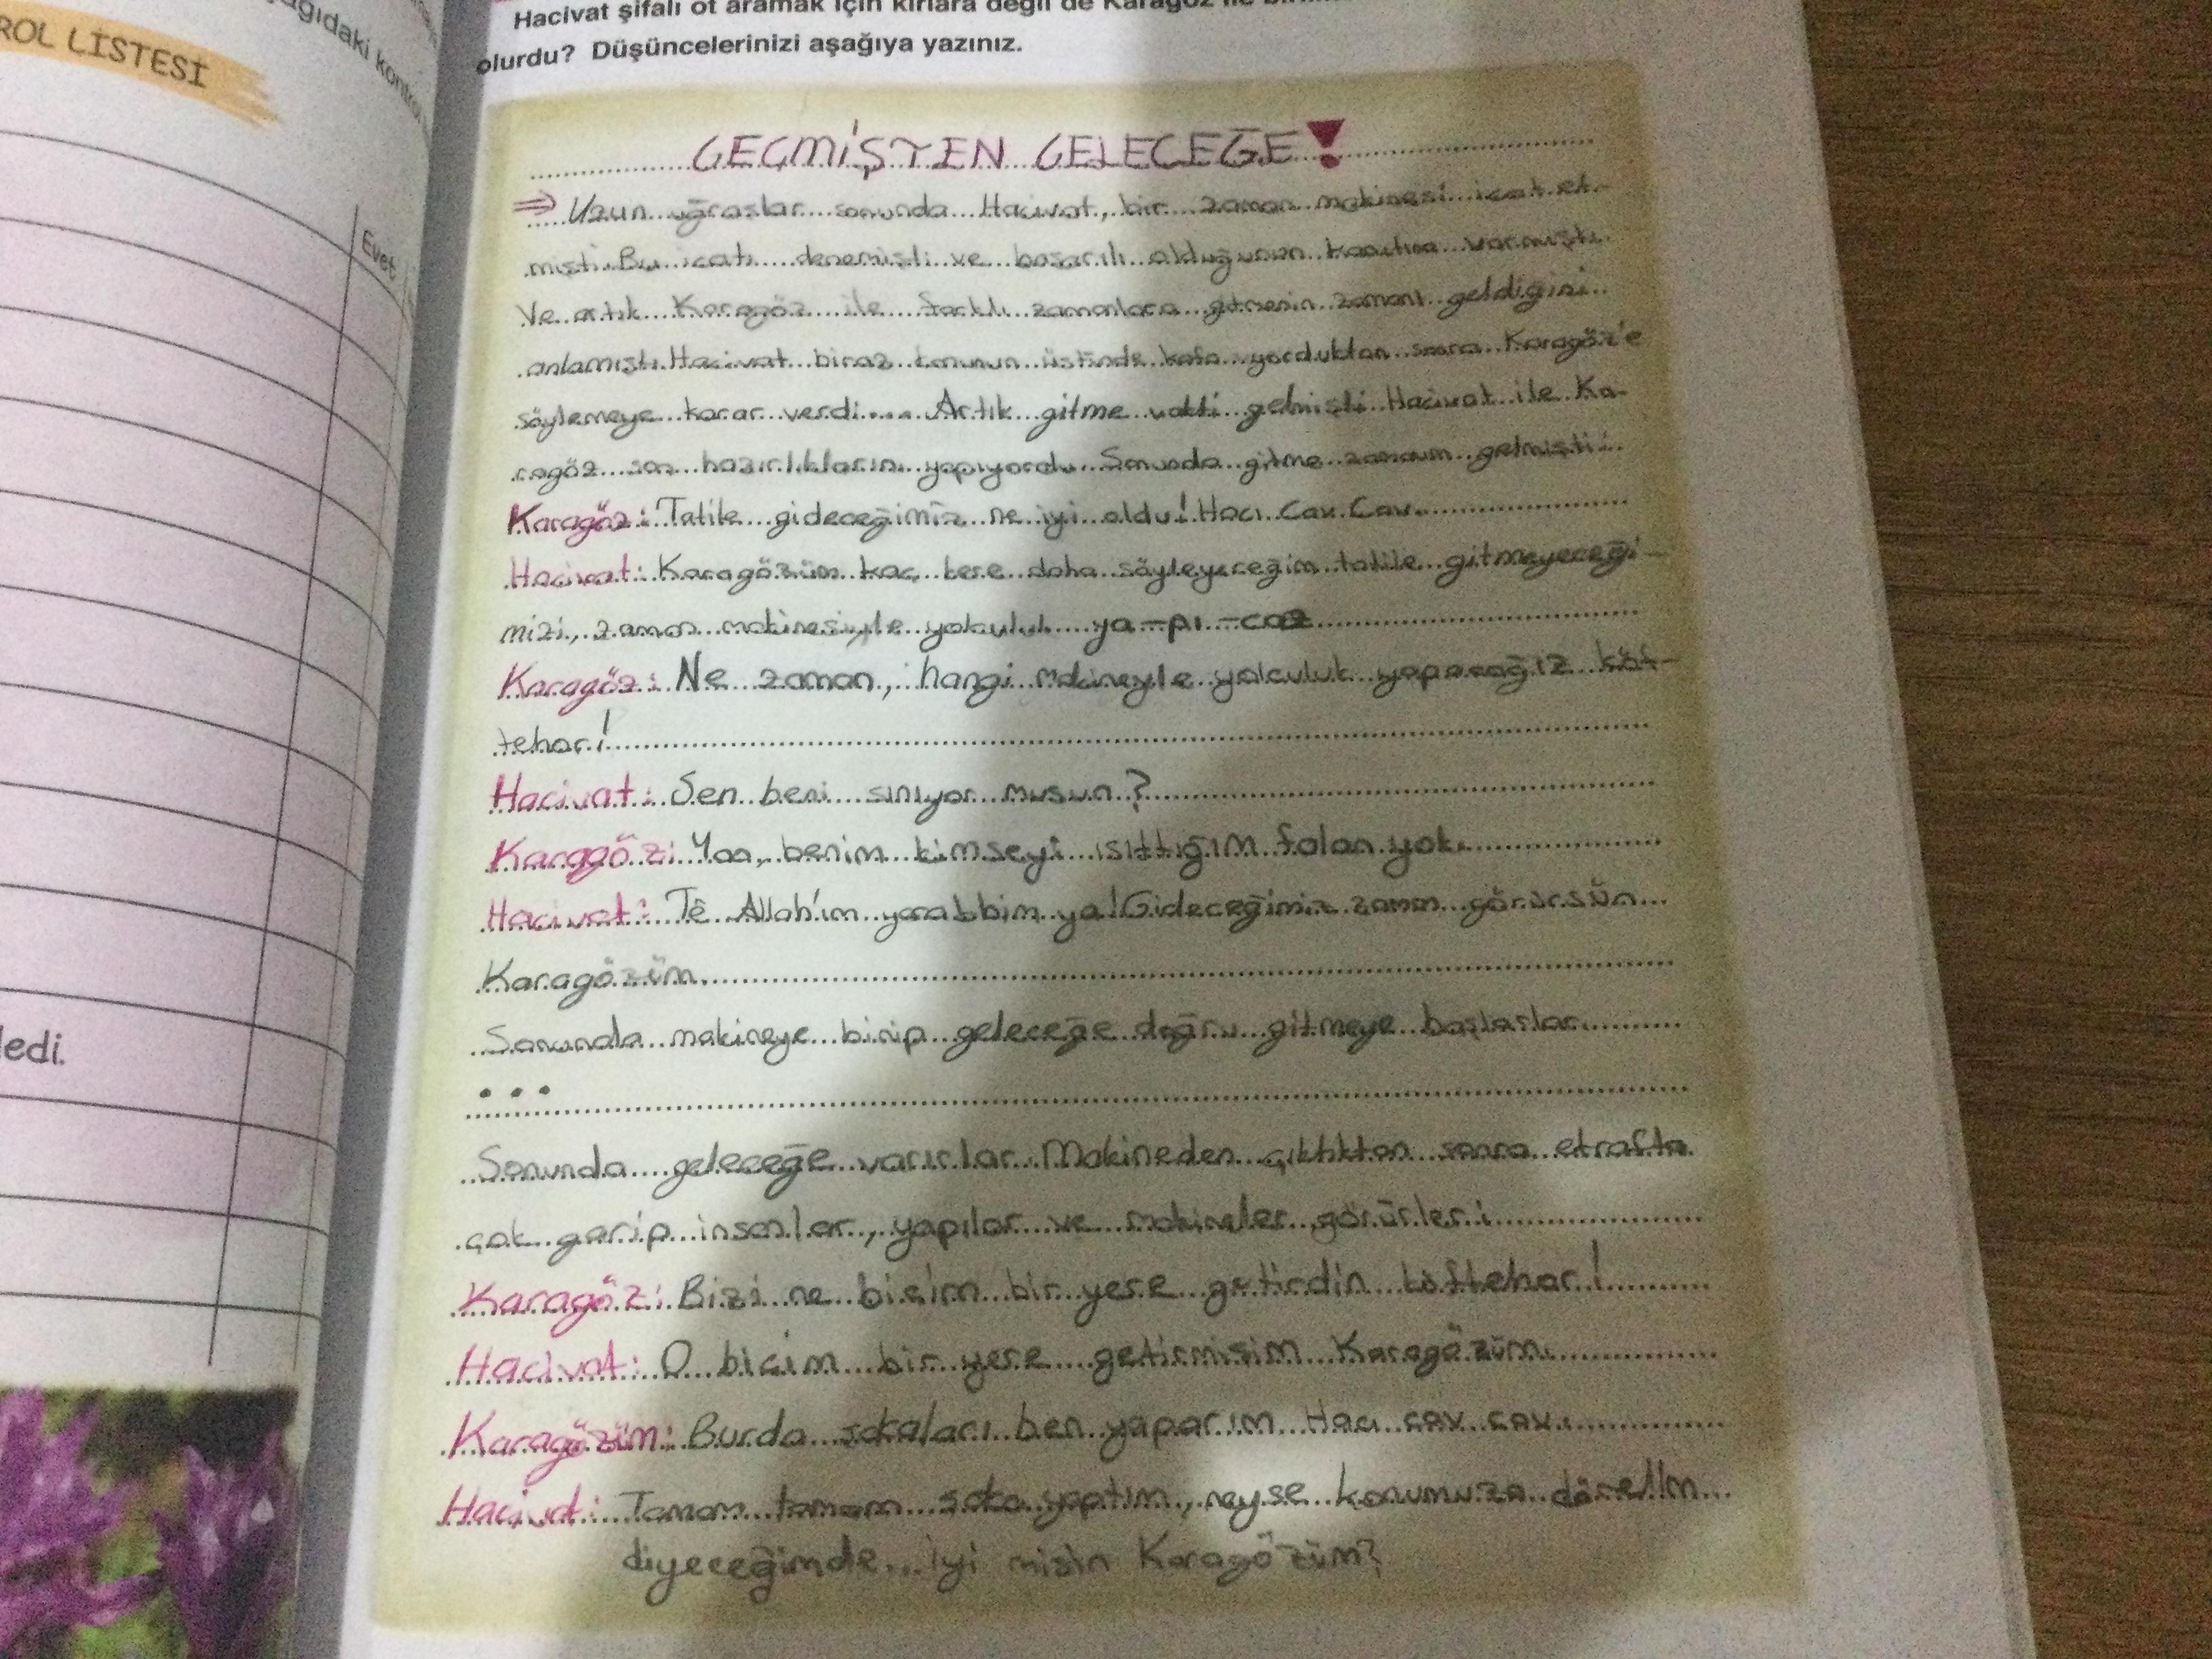 ROL LİSTESİ
ağıdaki kontrol
Evet
ledi.
Hacivat şifalı ot aramak için kırlara değil de Karagöz ile
olurdu? Düşüncelerinizi aşağıya yazınız.
GEÇMİŞTEN GELECEĞE!
⇒ Uzun uğraşlar sonunda Hacivat, bir zaman makinesi icat et-
mişti. Bu icatı denemişti ve başarılı olduğunun kanıtına varmıştı.
Ve artık Karagöz ile farklı zamanlara gitmenin zamanı geldiğini
anlamıştı. Hacivat biraz konunun üstünde kafa yorduktan sonra Karagöz'e
söylemeye karar verdi.... Artık gitme vakti gelmişti Hacivat ile Ka-
ragöz son hazırlıklarını yapıyordu. Sonunda gitme zamanı gelmişti:
Karagöz: Tatile gideceğimiz ne iyi oldu! Hacı Cav Cav.
Hacivat: Karagözüm kaç kere daha söyleyeceğim tatile gitmeyeceği-
mizi, zaman makinesiyle yolculuk ya-pı-caz
Karagöz: Ne zaman, hangi makineyle yolculuk yapacağız köf-
tehor!
Hacivat: Sen beni sınıyor musun?
Karagöz: Yoo, benim kimseyi ısıttığım falan yok.
Hacivat: Tê Allah'ım yarabbim ya! Gideceğimiz zaman görürsün
Karagözüm.
Sonunda makineye binip geleceğe doğru gitmeye başlarlar.
...
Sonunda geleceğe varırlar. Makineden çıktıktan sonra etrafta
çok garip insanlar, yapılar ve makineler görürler:
Karagöz: Bizi ne biçim bir yere getirdin köftehor!
Hacivat: O biçim bir yere getirmişim Karagözüm.
Karagözüm: Burda şakaları ben yaparım Hacı cav cav.
Hacivat: Tamam tamam şaka yaptım, neyse konumuza dönelim
diyeceğimde... iyi misin Karagözüm?